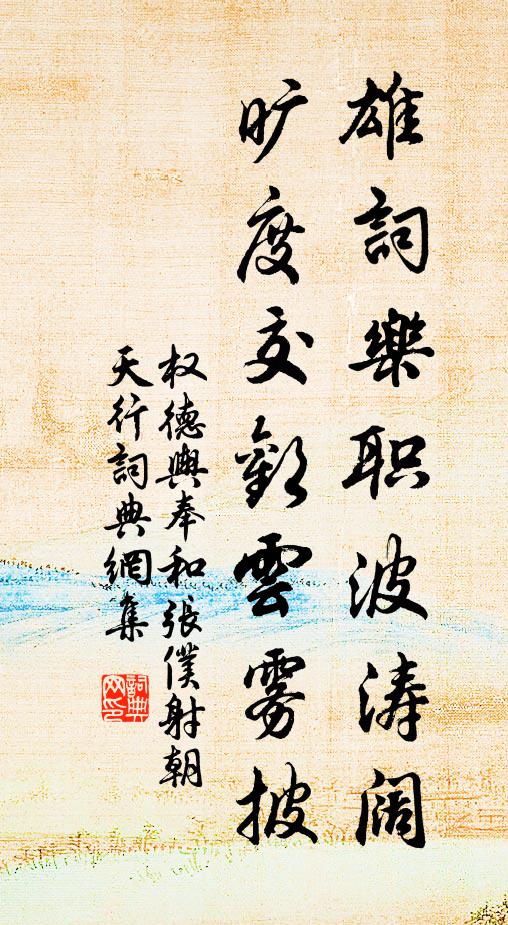 雄詞樂职波涛阔
旷度交歡雲雾披
权德輿奉和張僕射朝
天行詞典網集
詞典
网印